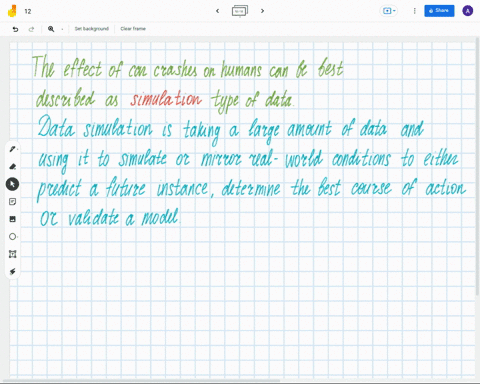 12
Share
A
Set background
Clear frame
The effect of car crashes on humans can be best
described as simulation type of data.
Data simulation is taking a large amount of data and
using it to simulate or mirror real-world conditions to either
predict a future instance, determine the best course of action
or validate a model